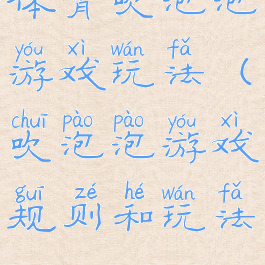 体育吹泡泡
yóu xì wán fǎ
游戏玩法（
chuī pào pào yóu xì
吹泡泡游戏
guī zé hé wán fǎ
规则和玩法